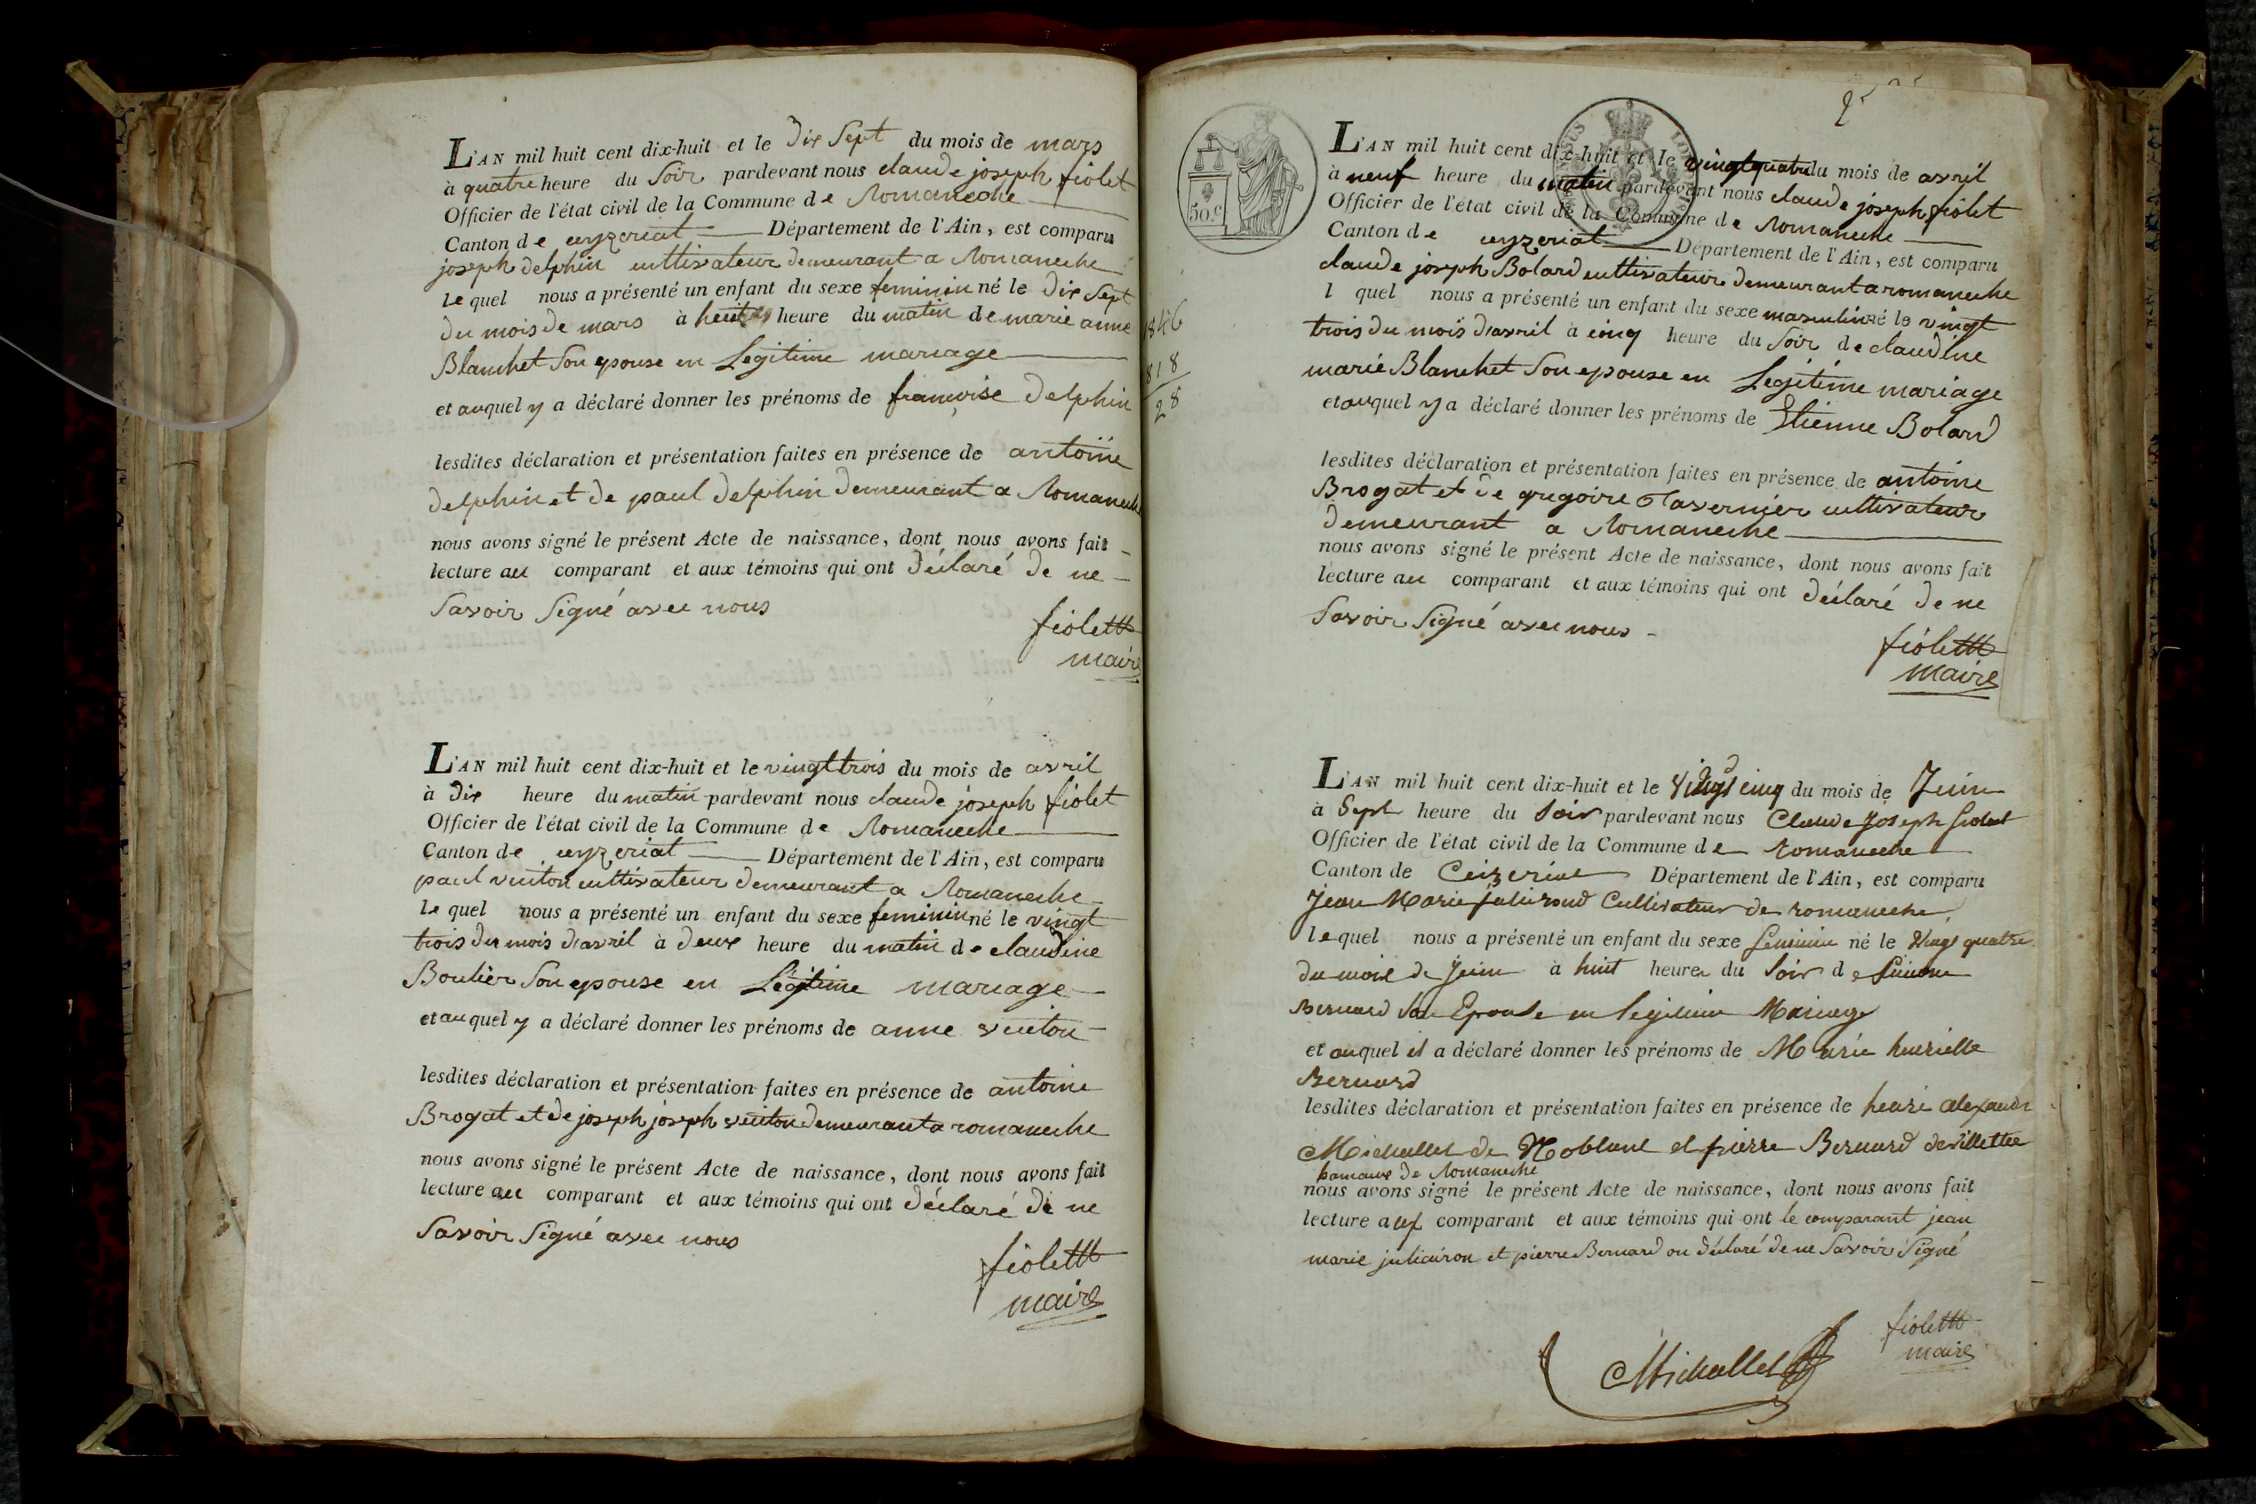 L'AN mil huit cent dix-huit et le dix sept du mois de mars
à quatre heure du soir pardevant nous claude joseph fiolet
Officier de l'état civil de la Commune de Romaneche
Canton de ceyzeriat Département de l'Ain, est comparu
joseph delphin cultivateur demeurant a Romaneche
lequel nous a présenté un enfant du sexe feminin né le dix sept
du mois de mars à heure du matin de marie anne
Blanchet son epouse en Legitime mariage
et auquel y a déclaré donner les prénoms de francoise delphin
lesdites déclaration et présentation faites en présence de antoine
delphin et de paul delphin demeurant a Romaneche
nous avons signé le présent Acte de naissance, dont nous avons fait
lecture au comparant et aux témoins qui ont déclaré de ne
savoir signé avec nous
fiolet
maire
L'AN mil huit cent dix-huit et le vingt trois du mois de avril
à dix heure du matin pardevant nous claude joseph fiolet
Officier de l'état civil de la Commune de Romaneche
Canton de ceyzeriat Département de l'Ain, est comparu
paul cultivateur demeurant a Romaneche
lequel nous a présenté un enfant du sexe feminin né le vingt
trois du mois d'avril à deux heure du matin de claudine
Boulier son epouse en Légitime mariage
et auquel y a déclaré donner les prénoms de anne
lesdites déclaration et présentation faites en présence de antoine
Brogat et de joseph joseph demeurant a romaneche
nous avons signé le présent Acte de naissance, dont nous avons fait
lecture au comparant et aux témoins qui ont déclaré de ne
savoir signé avec nous
fiolet
maire
50 c
1846
818
28
L'AN mil huit cent dix-huit et le vingt quatre du mois de avril
à neuf heure du matin pardevant nous claude joseph fiolet
Officier de l'état civil de la Commune de Romaneche
Canton de ceyzeriat Département de l'Ain, est comparu
claude joseph Bolard cultivateur demeurant a romaneche
l quel nous a présenté un enfant du sexe masculin né le vingt
trois du mois d'avril à cinq heure du soir de claudine
marie Blanchet son epouse en Legitime mariage
et auquel y a déclaré donner les prénoms de Etienne Bolard
lesdites déclaration et présentation faites en présence de antoine
Brogat et de gregoire Tavernier cultivateur
demeurant a Romaneche
nous avons signé le présent Acte de naissance, dont nous avons fait
lecture au comparant et aux témoins qui ont déclaré de ne
savoir signé avec nous
fiolet
maire
L'AN mil huit cent dix-huit et le vingt cinq du mois de Juin
à sept heure du soir pardevant nous Claude Joseph fiolet
Officier de l'état civil de la Commune de Romaneche
Canton de Ceizeriat Département de l'Ain, est comparu
Jean Marie Cultivateur de romaneche
lequel nous a présenté un enfant du sexe feminin né le vingt quatre
du mois de Juin à huit heure du soir de
Bernard son Epouse en legitime Mariage
et auquel il a déclaré donner les prénoms de Marie henriette
Bernard
lesdites déclaration et présentation faites en présence de henri alexandre
Michallet de Noblens et pierre Bernard de villette
hameaux de Romaneche
nous avons signé le présent Acte de naissance, dont nous avons fait
lecture aux comparant et aux témoins qui ont le comparant jean
marie juliairon et pierre Bernard on déclaré de ne savoir signé
Michallet
fiolet
maire